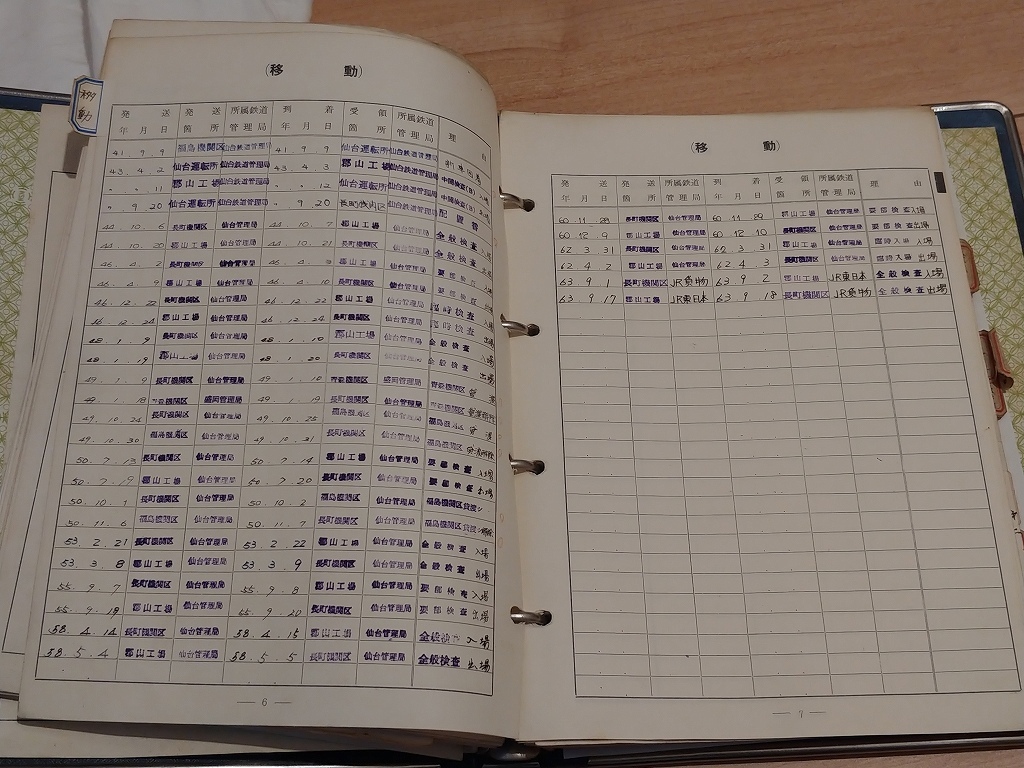 移動
(移動)
発送 発送 所属鉄道 到着 受領 所属鉄道 理由
年月日 箇所 管理局 年月日 箇所 管理局
41.9.9 福島機関区 仙台鉄道管理局 41.9.9
43.4.2 仙台運転所 仙台鉄道管理局 43.4.3 郡山工場 仙台鉄道管理局 中間検査(B) 入場
〃.〃.11 郡山工場 仙台鉄道管理局 〃.〃.12 仙台運転所 仙台鉄道管理局 中間検査(B) 出場
〃.9.20 仙台運転所 仙台鉄道管理局 〃.9.20 長町機関区 仙台鉄道管理局 配置替
44.10.6 長町機関区 仙台管理局 44.10.7 郡山工場 仙台管理局 全般検査 入場
44.10.20 郡山工場 仙台管理局 44.10.21 長町機関区 仙台管理局 全般検査 出場
46.4.2 長町機関区 仙台管理局 46.4.3 郡山工場 仙台管理局 要部検査 入場
46.4.9 郡山工場 仙台管理局 46.4.10 長町機関区 仙台管理局 要部検査 出場
46.12.22 長町機関区 仙台管理局 46.12.22 郡山工場 仙台管理局 臨時検査 入場
46.12.24 郡山工場 仙台管理局 46.12.24 長町機関区 仙台管理局 臨時検査 出場
48.1.9 長町機関区 仙台管理局 48.1.10 郡山工場 仙台管理局 全般検査 入場
48.1.19 郡山工場 仙台管理局 48.1.20 長町機関区 仙台管理局 全般検査 出場
49.1.9 長町機関区 仙台管理局 49.1.10 青森機関区 盛岡管理局 青森機関区 貸渡
49.1.18 青森機関区 盛岡管理局 49.1.19 長町機関区 仙台管理局 青森機関区 貸渡解除
49.10.24 長町機関区 仙台管理局 49.10.25 福島機関区 仙台管理局 福島機関区 貸渡
49.10.30 福島機関区 仙台管理局 49.10.31 長町機関区 仙台管理局 福島機関区 貸渡解除
50.7.13 長町機関区 仙台管理局 50.7.14 郡山工場 仙台管理局 要部検査 入場
50.7.19 郡山工場 仙台管理局 50.7.20 長町機関区 仙台管理局 要部検査 出場
50.10.1 長町機関区 仙台管理局 50.10.2 福島機関区 仙台管理局 福島機関区貸渡シ
50.11.6 福島機関区 仙台管理局 50.11.7 長町機関区 仙台管理局 福島機関区貸渡シ解除
53.2.21 長町機関区 仙台管理局 53.2.22 郡山工場 仙台管理局 全般検査 入場
53.3.8 郡山工場 仙台管理局 53.3.9 長町機関区 仙台管理局 全般検査 出場
55.9.7 長町機関区 仙台管理局 55.9.8 郡山工場 仙台管理局 要部検査 入場
55.9.19 郡山工場 仙台管理局 55.9.20 長町機関区 仙台管理局 要部検査 出場
58.4.14 長町機関区 仙台管理局 58.4.15 郡山工場 仙台管理局 全般検査 入場
58.5.4 郡山工場 仙台管理局 58.5.5 長町機関区 仙台管理局 全般検査 出場
— 6 —
(移動)
発送 発送 所属鉄道 到着 受領 所属鉄道 理由
年月日 箇所 管理局 年月日 箇所 管理局
60 11 28 長町機関区 仙台管理局 60 11 29 郡山工場 仙台管理局 要部検査入場
60 12 9 郡山工場 仙台管理局 60 12 10 長町機関区 仙台管理局 要部検査出場
62 3 31 長町機関区 仙台管理局 62 3 31 郡山工場 仙台管理局 臨時入場 入場
62 4 2 郡山工場 仙台管理局 62 4 3 長町機関区 仙台管理局 臨時入場 出場
63 9 1 長町機関区 JR貨物 63 9 2 郡山工場 JR東日本 全般検査入場
63 9 17 郡山工場 JR東日本 63 9 18 長町機関区 JR貨物 全般検査出場
— 7 —